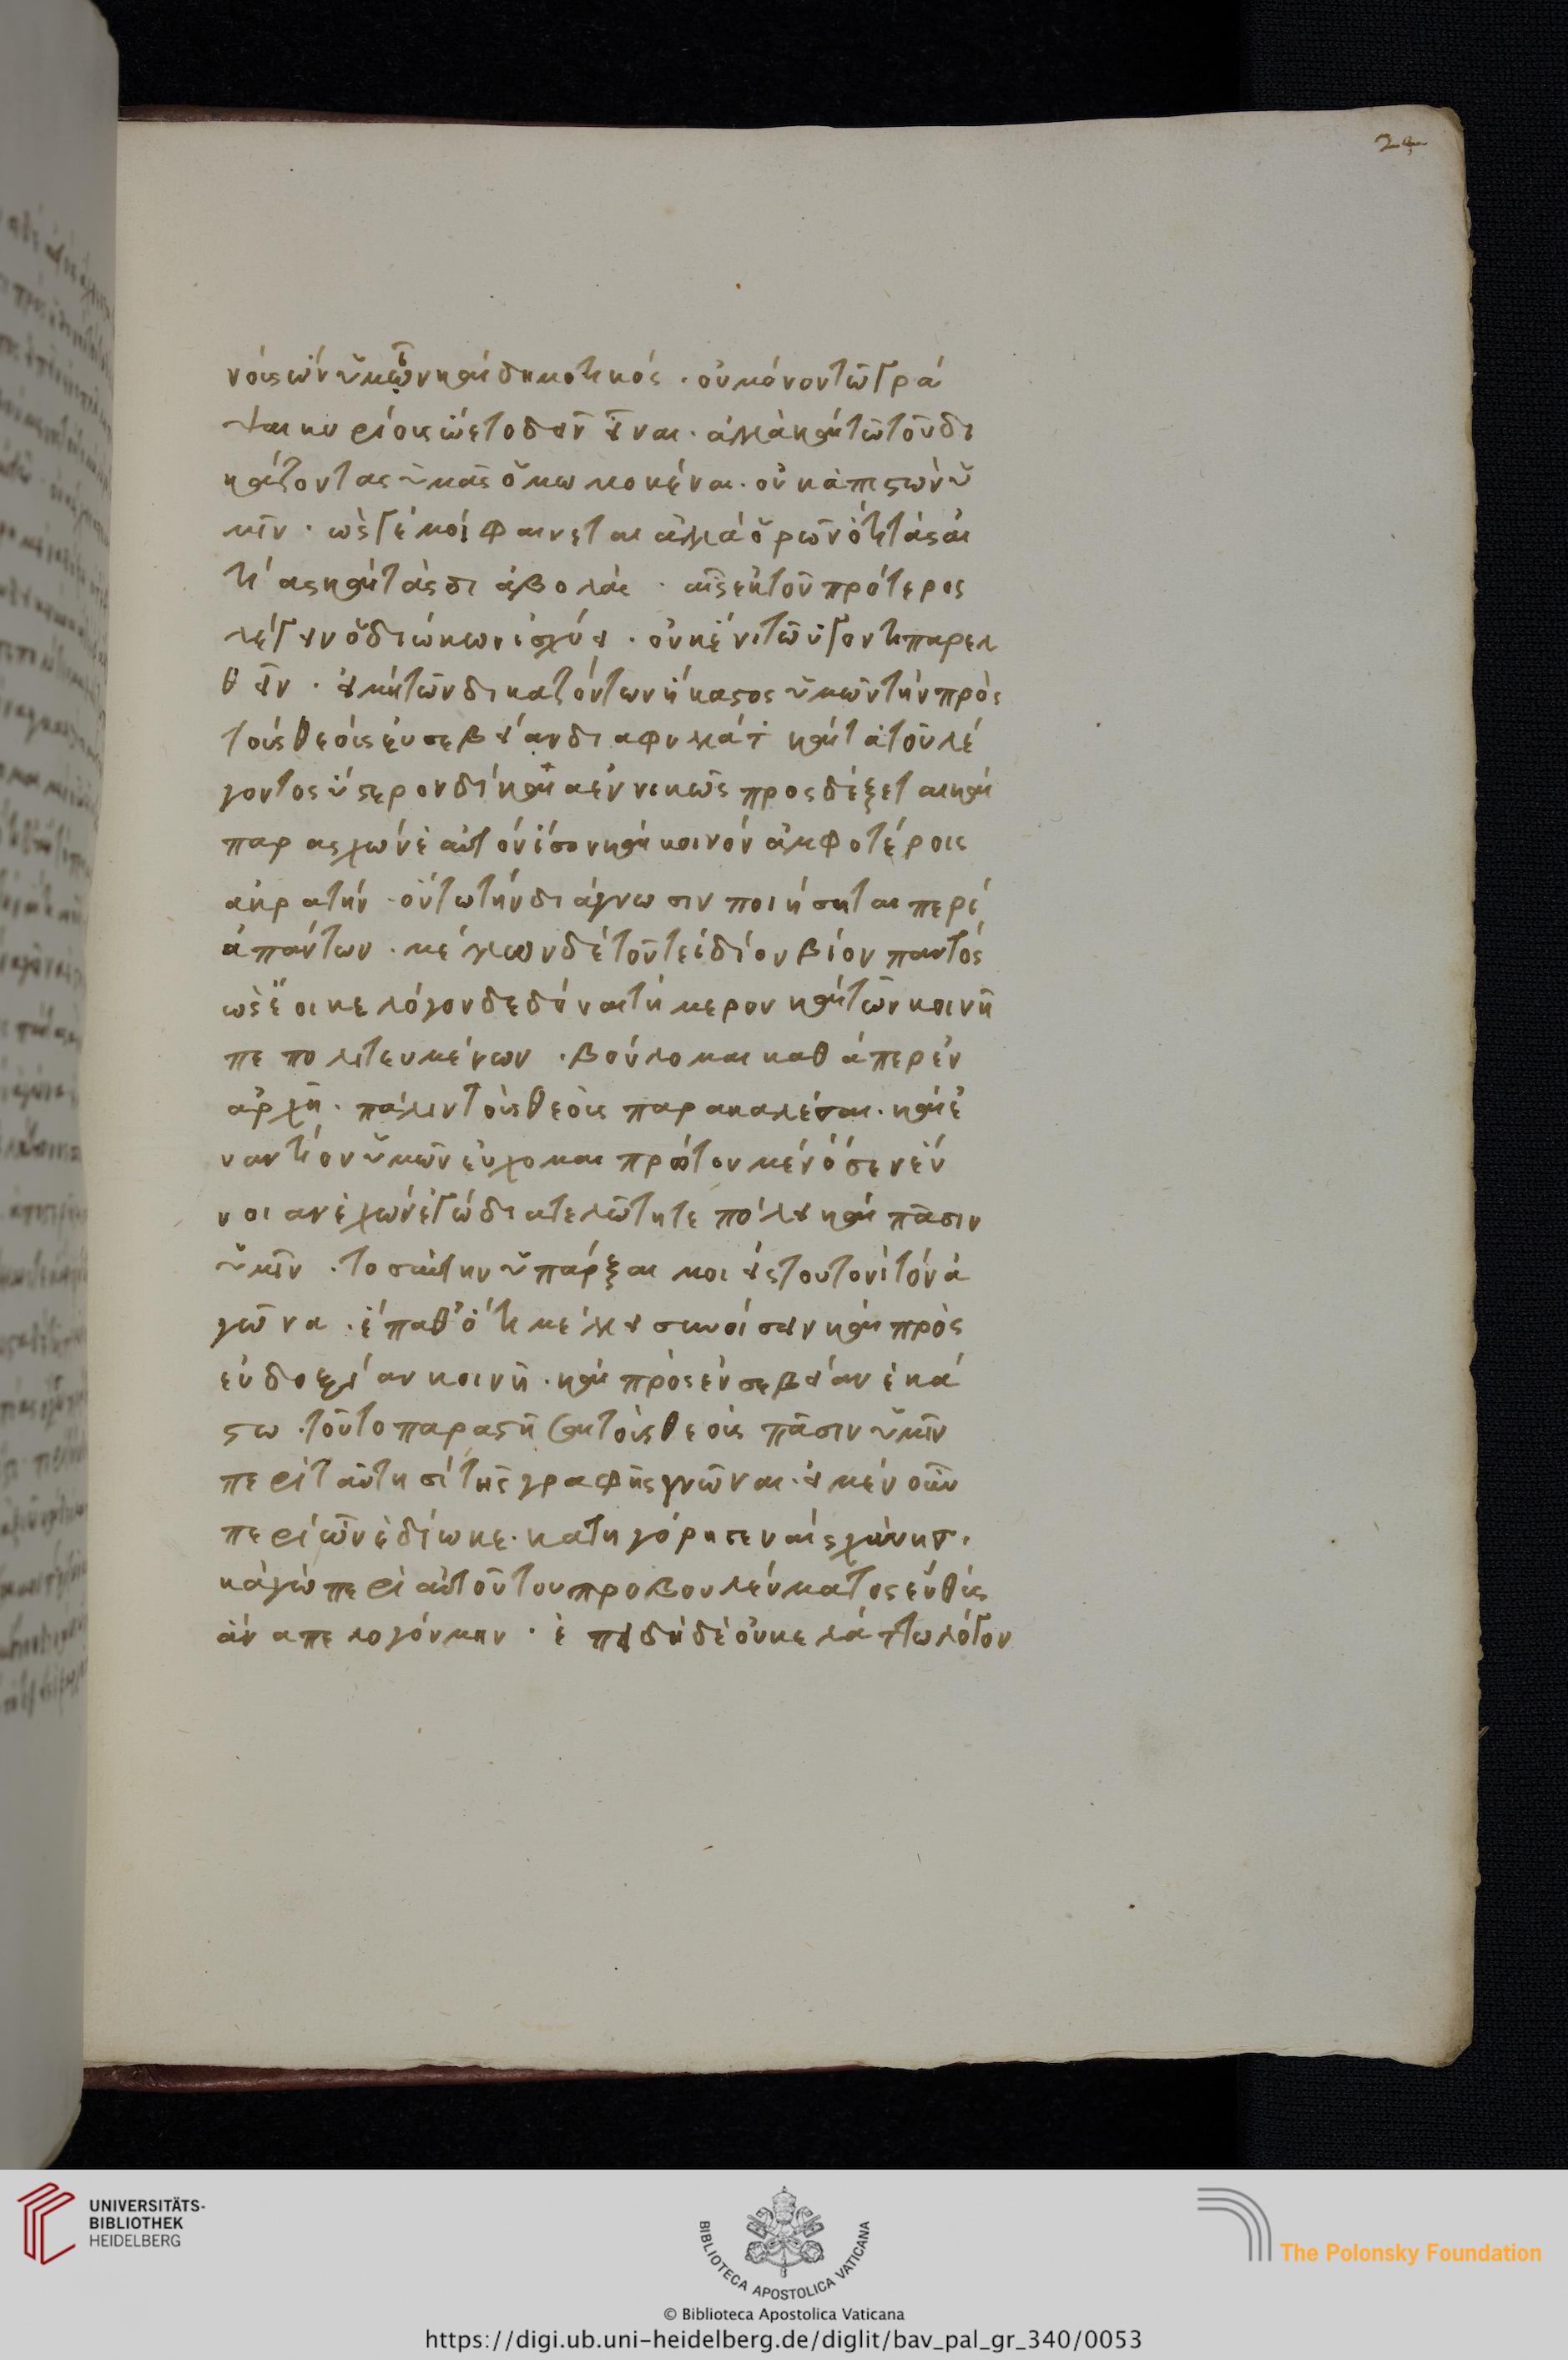 24
νοις ὢν ὑμῶν καὶ δημοτικός . οὐ μόνον τῷ γρά
ψαι κυρίους ᾤετο δεῖν εἶναι . ἀλλὰ καὶ τῷ τοὺς δι
κάζοντας ὑμᾶς ὀμωμοκέναι . οὐκ ἀπιστῶν ὑ
μῖν . ὥς γέ μοι φαίνεται ἀλλὰ ὁρῶν ὅτι τὰς αἰ
τίας καὶ τὰς διαβολάς . αἷς ἐκ τοῦ πρότερος
λέγειν ὁ διώκων ἰσχύει . οὐκ ἔνι τῷ φεύγοντι παρελ
θεῖν . εἰ μὴ τῶν δικαζόντων ἕκαστος ὑμῶν τὴν πρὸς
τοὺς θεοὺς εὐσέβειαν διαφυλάττ καὶ τὰ τοῦ λέ
γοντος ὕστερον δίκαια εὐνικῶς προσδέξεται καὶ
παρασχὼν ἑαυτὸν ἴσον καὶ κοινὸν ἀμφοτέροις
ἀκρατὴν . οὕτω τὴν διάγνωσιν ποιήσηται περὶ
ἁπάντων . μέλλων δὲ τοῦ τε ἰδίου βίου παντός
ὡς ἔοικε λόγον διδόναι τήμερον καὶ τῶν κοινῇ
πεπολιτευμένων . βούλομαι καθάπερ ἐν
ἀρχῇ . πάλιν τοὺς θεοὺς παρακαλέσαι . καὶ ἐ
ναντίον ὑμῶν εὔχομαι πρῶτον μὲν ὅσην εὔ
νοιαν ἔχων ἐγὼ διατελῶ τῇ τε πόλει καὶ πᾶσιν
ὑμῖν . τοσαύτην ὑπάρξαι μοι εἰς τουτονὶ τὸν ἀ
γῶνα . ἔπειθ' ὅτι μέλλει συνοίσειν καὶ πρὸς
εὐδοξίαν κοινῇ . καὶ πρὸς εὐσέβειαν ἑκά
στω . τοῦτο παραστῆσαι τοὺς θεοὺς πᾶσιν ὑμῖν
περὶ ταύτησὶ τῆς γραφῆς γνῶναι . εἰ μὲν οὖν
περὶ ὧν ἐδίωκε . κατηγόρησεν αἰσχίνης .
κἀγὼ περὶ αὐτοῦ τοῦ προβουλεύματος εὐθὺς
ἂν ἀπελογούμην . ἐπειδὴ δὲ οὐκ ἐλάττω λόγον
UNIVERSITÄTS-
BIBLIOTHEK
HEIDELBERG
BIBLIOTECA APOSTOLICA VATICANA
© Biblioteca Apostolica Vaticana
The Polonsky Foundation
https://digi.ub.uni-heidelberg.de/diglit/bav_pal_gr_340/0053